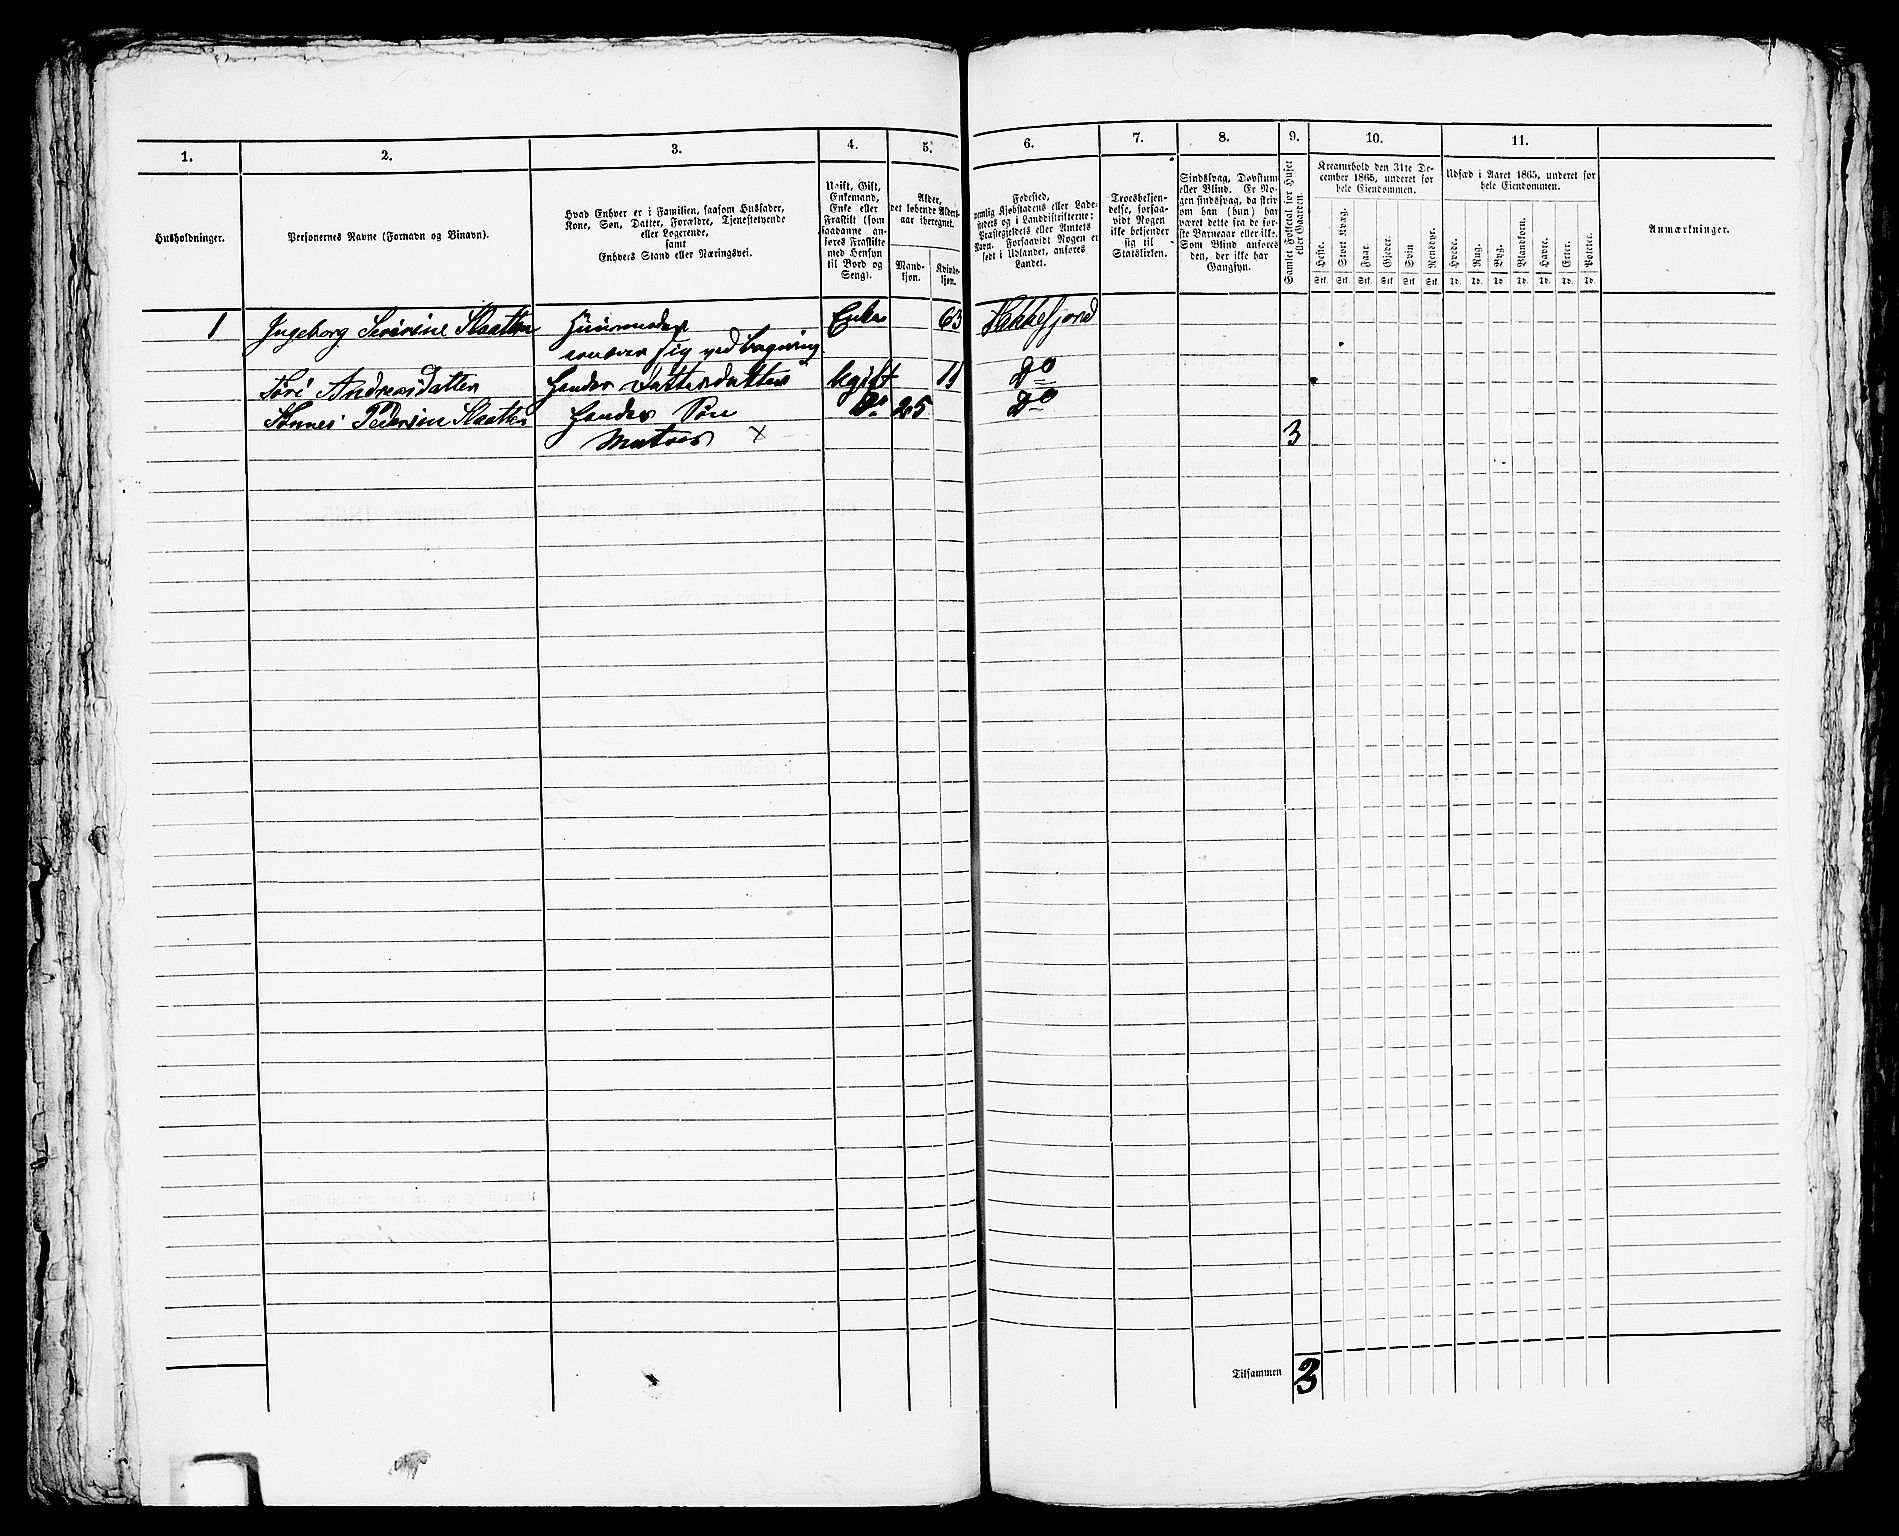 1. 2. 3. 4. 5. 6. 7. 8. 9. 10. 11.
Husholdninger.
Personernes Navne (Fornavn og Binavn).
Hvad Enhver er i Familien, saasom Husfader,
Kone, Søn, Datter, Forældre, Tjenestetyende
eller Logerende,
samt
Enhvers Stand eller Næringsvei.
Ugift, Gift,
Enkemand,
Enke eller
Fraskilt (som
saadanne an-
føres Fraskilte
med Hensyn
til Bord og
Seng).
Alder,
det løbende Alders-
aar iberegnet.
Mand-
kjøn.
Kvinde-
kjøn.
Fødested,
nemlig Kjøbstadens eller Lade-
stedets og i Landdistrikterne:
Præstegjeldets eller Amtets
Navn. Forsaavidt Nogen er
født i Udlandet, anføres
Landet.
Troesbekjen-
delse, forsaa-
vidt Nogen
ikke bekjender
sig til
Statskirken.
Sindssvag, Døvstum
eller Blind. Er No-
gen sindssvag, da skriv
om han (hun) har
været dette fra de før-
ste Barneaar eller ikke.
Som Blind anføres
den, der ikke har
Gangsyn.
Samlet Folketal for Huset
eller Gaarden.
Kreaturhold den 31te De-
cember 1865, underet for
hele Eiendommen.
Heste. Stort Kvæg. Faar. Gjeder. Svin Rensdyr.
Stk. Stk. Stk. Stk. Stk Stk
Udsæd i Aaret 1865, underet for
hele Eiendommen.
Hvede. Rug. Byg. Blandkorn. Havre. Erter. Poteter.
Td. Td. Td Td. Td. Td. Td.
Anmærkninger.
1 Ingeborg Severine Slaatten Enke 63 Hekkefjord
sig ved bagning
Andreasdatter Hendes Datterdatter Ugift 11 Do
Tønnes Pedersen Slaatten Hendes Søn Do 25 Do
Matros × 3
Tilsammen 3